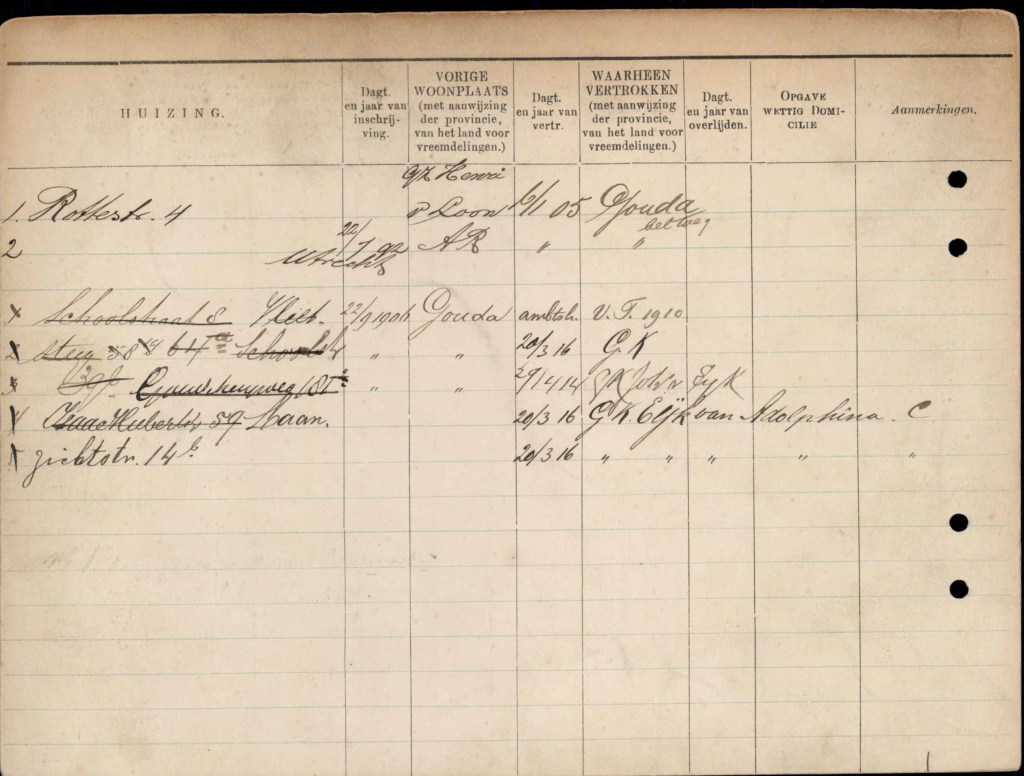 HUIZING.
Dagt.
en jaar van
inschrij-
ving.
VORIGE
WOONPLAATS
(met aanwijzing
der provincie,
van het land voor
vreemdelingen.)
Dagt.
en jaar van
vertr.
WAARHEEN
VERTROKKEN
(met aanwijzing
der provincie,
van het land voor
vreemdelingen.)
Dagt.
en jaar van
overlijden.
OPGAVE
WETTIG DOMI-
CILIE
Aanmerkingen.
Henri
1. Rottestr. 4 v Loon 6/1 05 Gouda
2 22/7 92 AR " "
Utrecht
Schoolstraat 8 Vliet. 22/9 1906 Gouda ambtsh. V. T. 1910
steeg 58 " " 20/3 16 G. K
3 " " 29/4 14 GK Joh's Eyk
4 Isaac Hubertstr 59 Laan. 20/3 16 G. K. Eijk van Adolphina. C
Zichtstr. 14 b 20/3 16 " " " " "